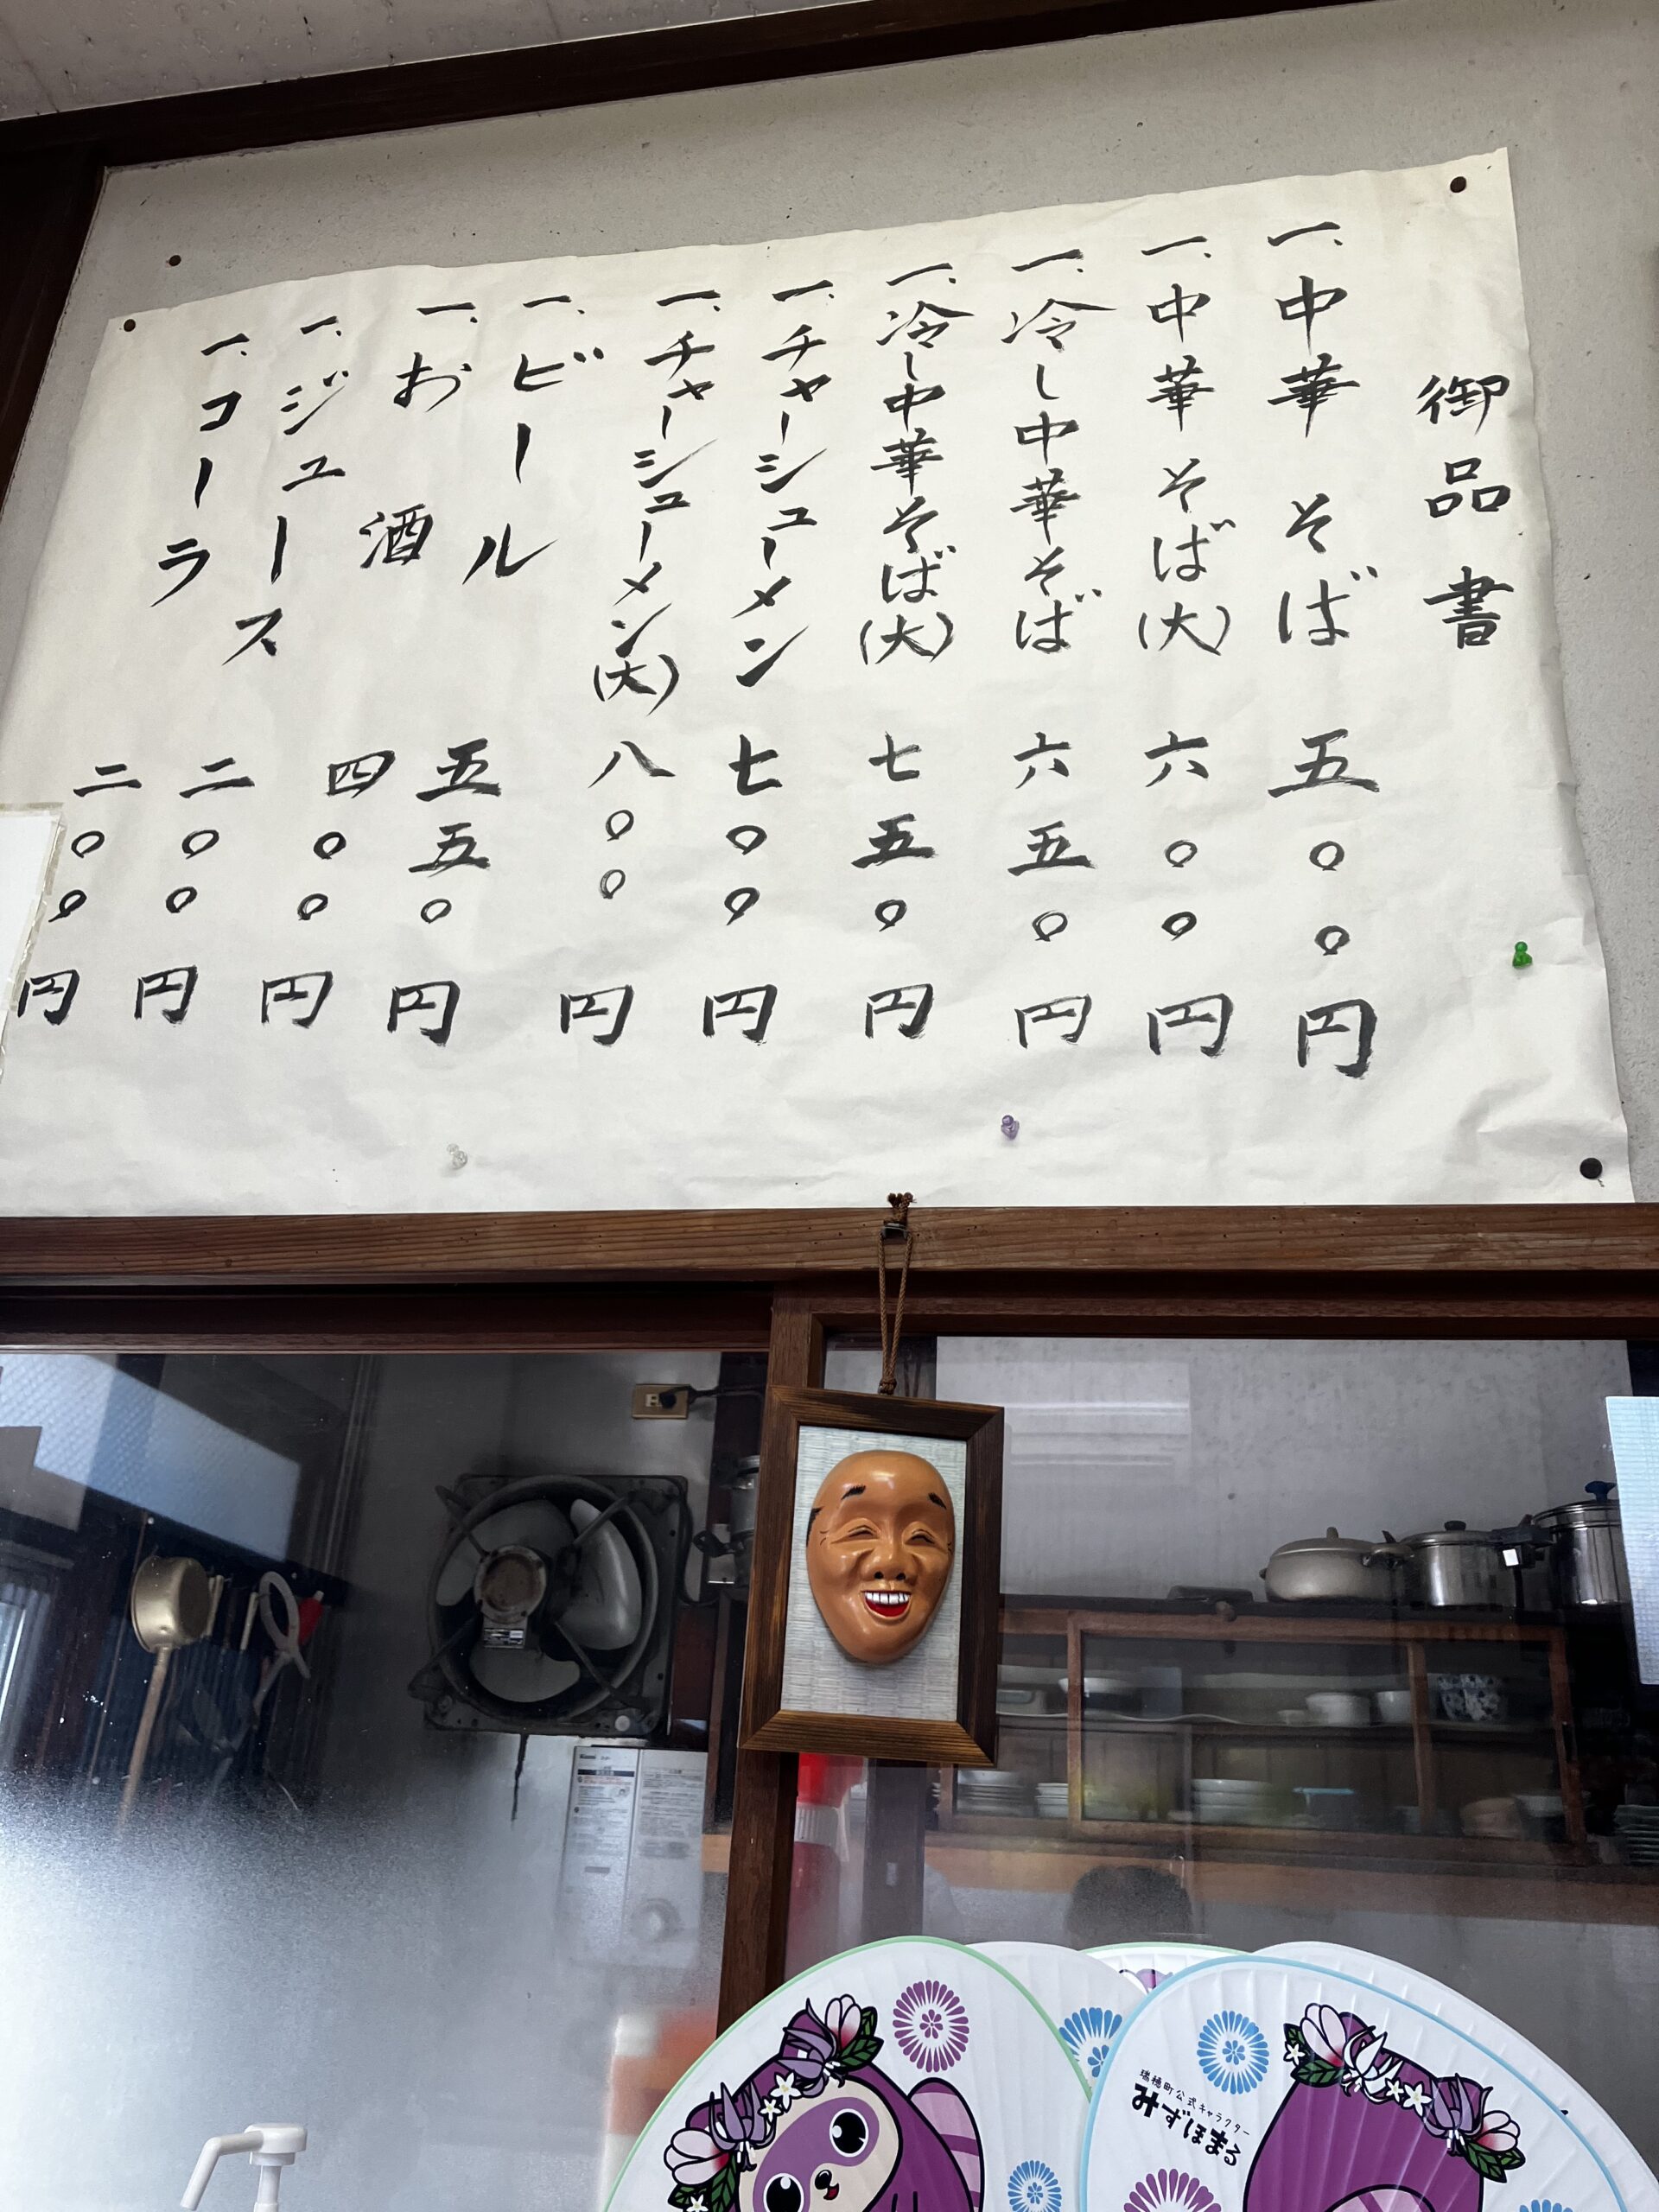 御品書
一、中華そば 五〇〇円
一、中華そば(大) 六〇〇円
一、冷し中華そば 六五〇円
一、冷し中華そば(大) 七五〇円
一、チャーシューメン 七〇〇円
一、チャーシューメン(大) 八〇〇円
一、ビール 五五〇円
一、お酒 四〇〇円
一、ジュース 二〇〇円
一、コーラ 二〇〇円
瑞穂町公式キャラクター
みずほまる